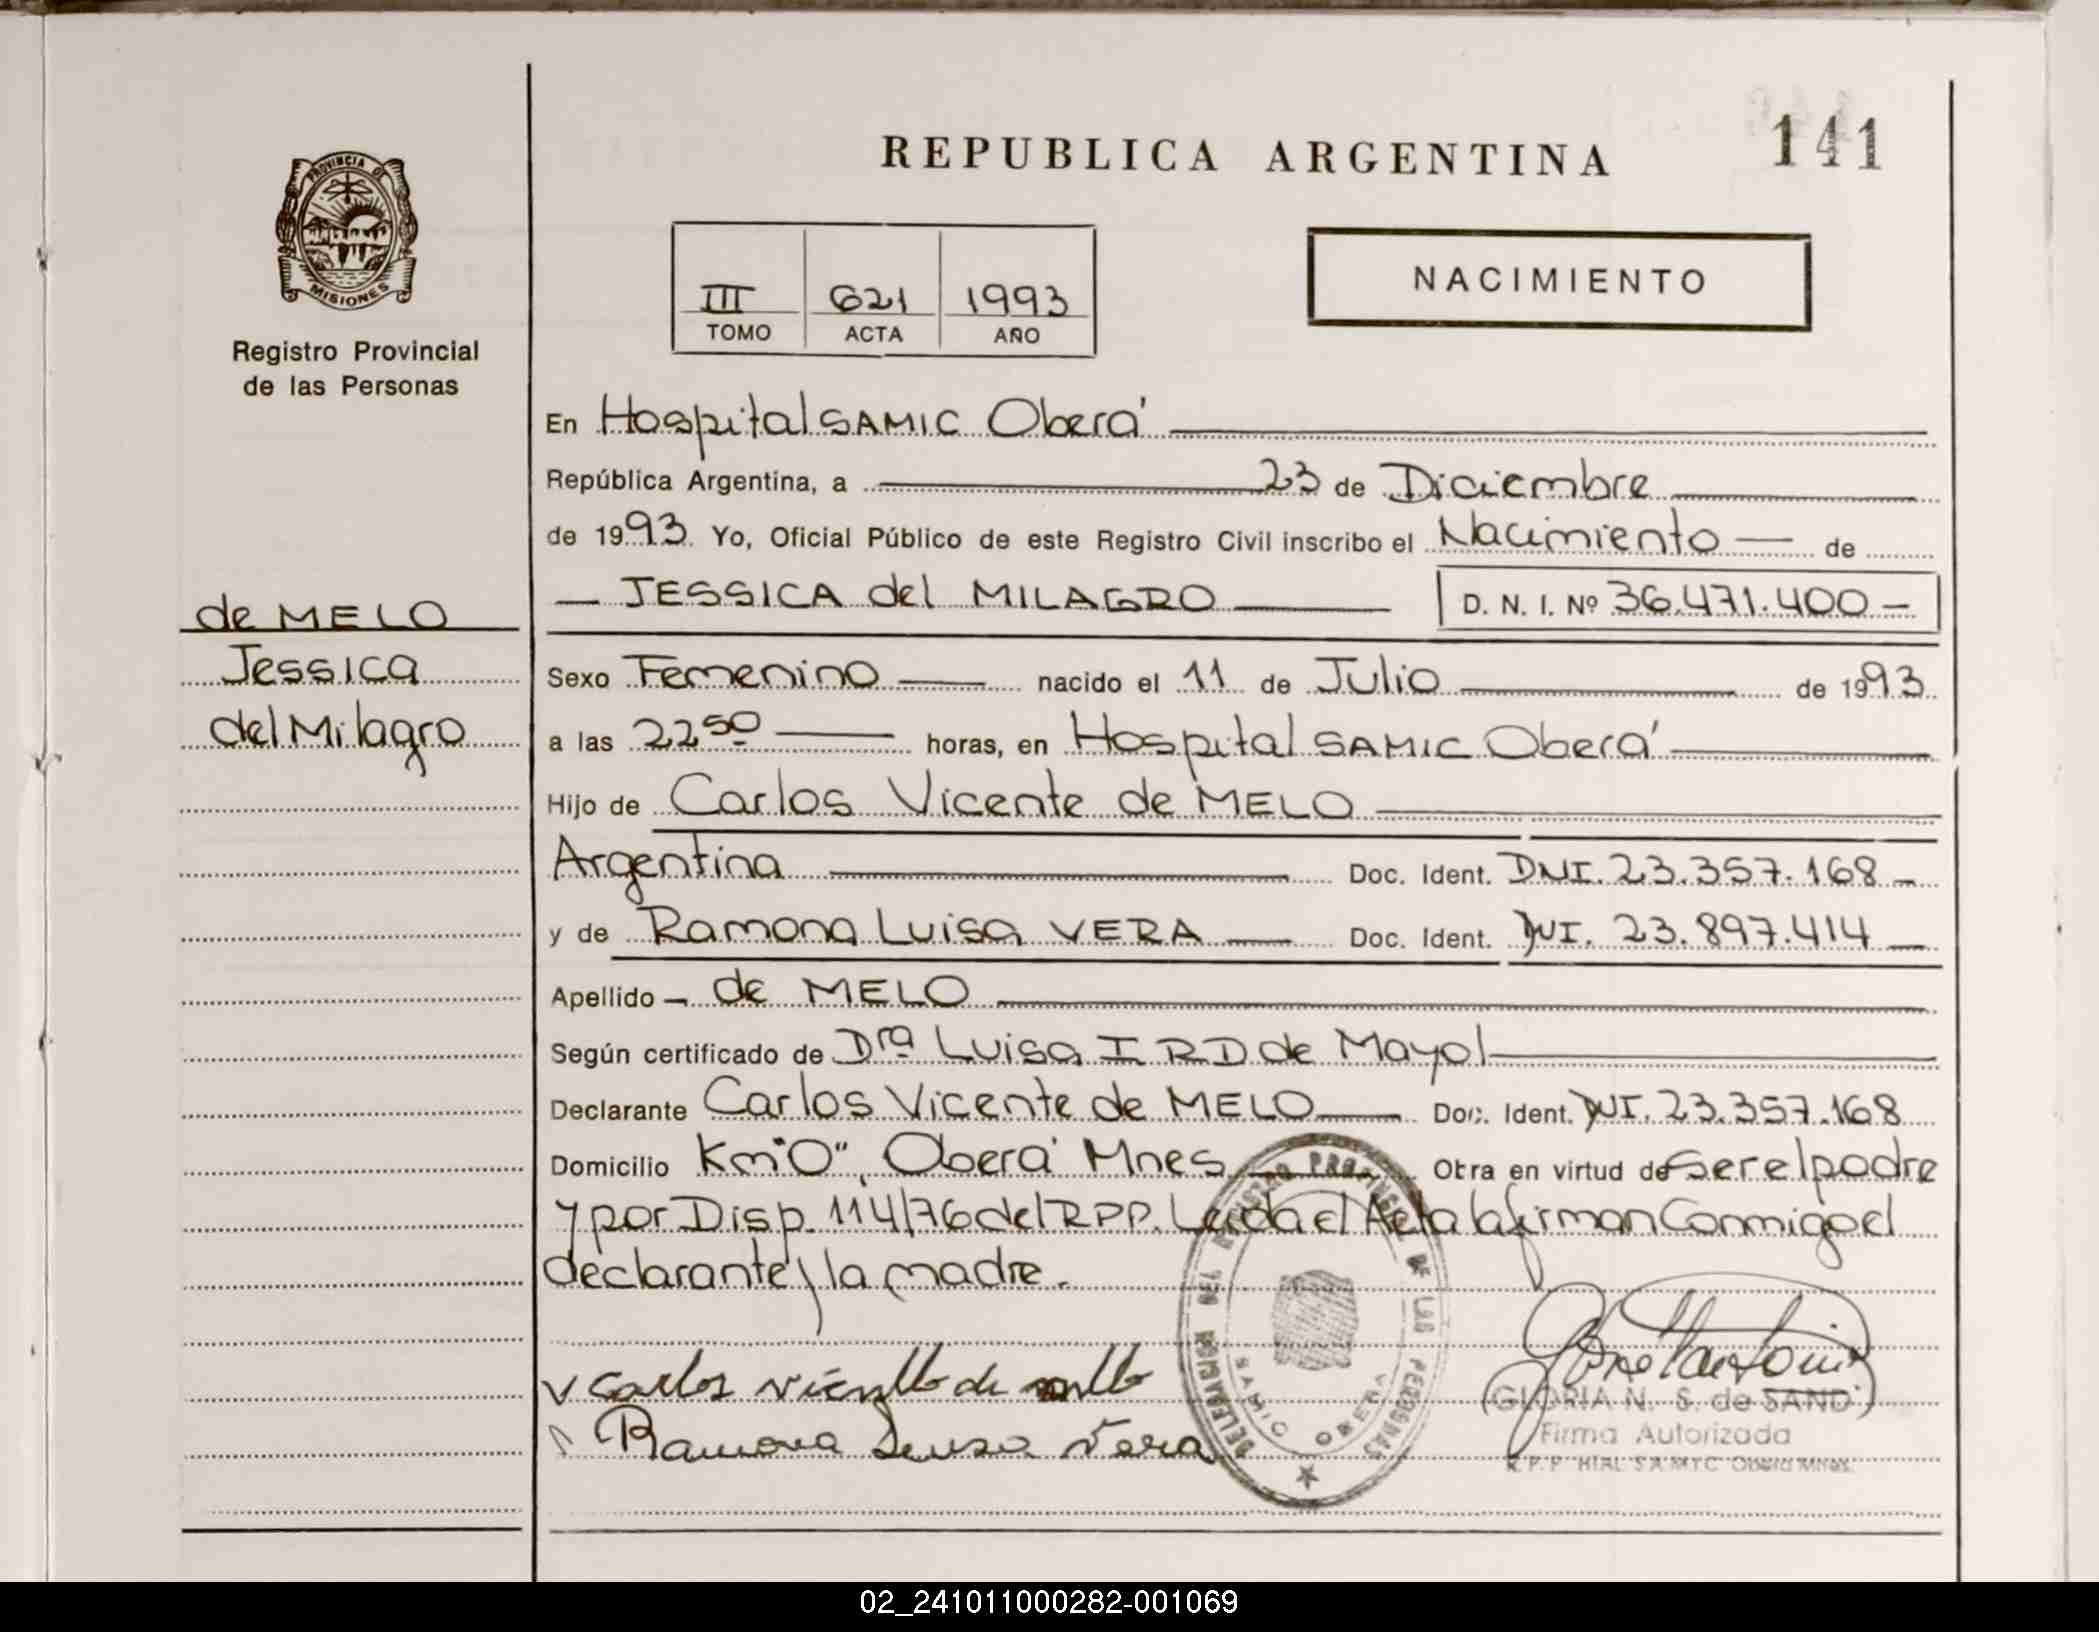 REPUBLICA ARGENTINA
141
PROVINCIA DE
MISIONES
Registro Provincial
de las Personas
III 621 1993
TOMO ACTA AÑO
NACIMIENTO
En Hospital SAMIC Oberá
República Argentina, a 23 de Diciembre
de 1993. Yo, Oficial Público de este Registro Civil inscribo el Nacimiento — de
— JESSICA del MILAGRO — D. N. I. Nº 36.471.400 —
de MELO
Jessica
del Milagro
Sexo Femenino — nacido el 11 de Julio — de 1993
a las 22 50 — horas, en Hospital SAMIC Oberá —
Hijo de Carlos Vicente de MELO —
Argentina — Doc. Ident. DNI. 23.357.168 —
y de Ramona Luisa VERA — Doc. Ident. DNI. 23.897.414 —
Apellido — de MELO —
Según certificado de Dra Luisa I R D de Mayol —
Declarante Carlos Vicente de MELO — Doc. Ident. DNI. 23.357.168
Domicilio Km "0", Oberá Mnes — Obra en virtud de ser el padre
y por Disp. 114/76 del RPP. Leida el Acta la firman Conmigo el
declarante y la madre.
Carlos Vicente de Mello
Ramona Luisa Vera
REGISTRO PROVINCIAL DE LAS PERSONAS
OBERA
GLORIA N. S. de SAND
Firma Autorizada
R.P.P. HTAL S.A.M.I.C Oberá Mnes.
02_241011000282-001069